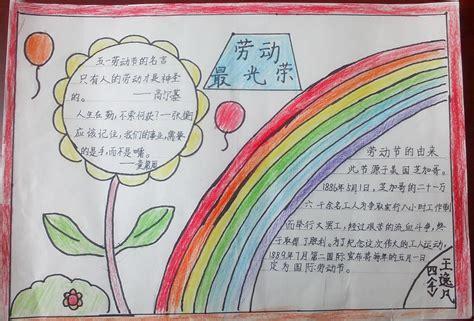 劳动
最光荣
五一劳动节的名言
只有人的劳动才是神圣
的。
——高尔基
人生在勤,不索何获?—张衡
应该记住,我们的事业,需要
的是手,而不是嘴。
——童第周
劳动节的由来
此节源于美国芝加哥。
1886年5月1日,芝加哥的二十一万
六千余名工人为争取实行八小时工作制
而举行大罢工,经过艰苦的流血斗争,终
于取得了胜利。为了纪念这次伟大的工人运动,
1889年7月第二国际宣布将每年的五月一日
定为国际劳动节。
四(5)
王逸凡